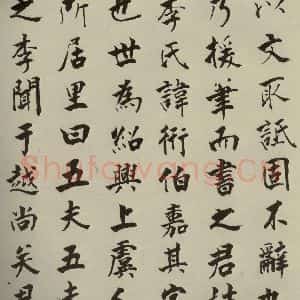 以文取詆固不辭也
乃援筆而書之君姓
李氏諱衍伯嘉其字
也世為紹興上虞人
所居里曰五夫五夫
之李聞于越尚矣
Shufawang.Cn